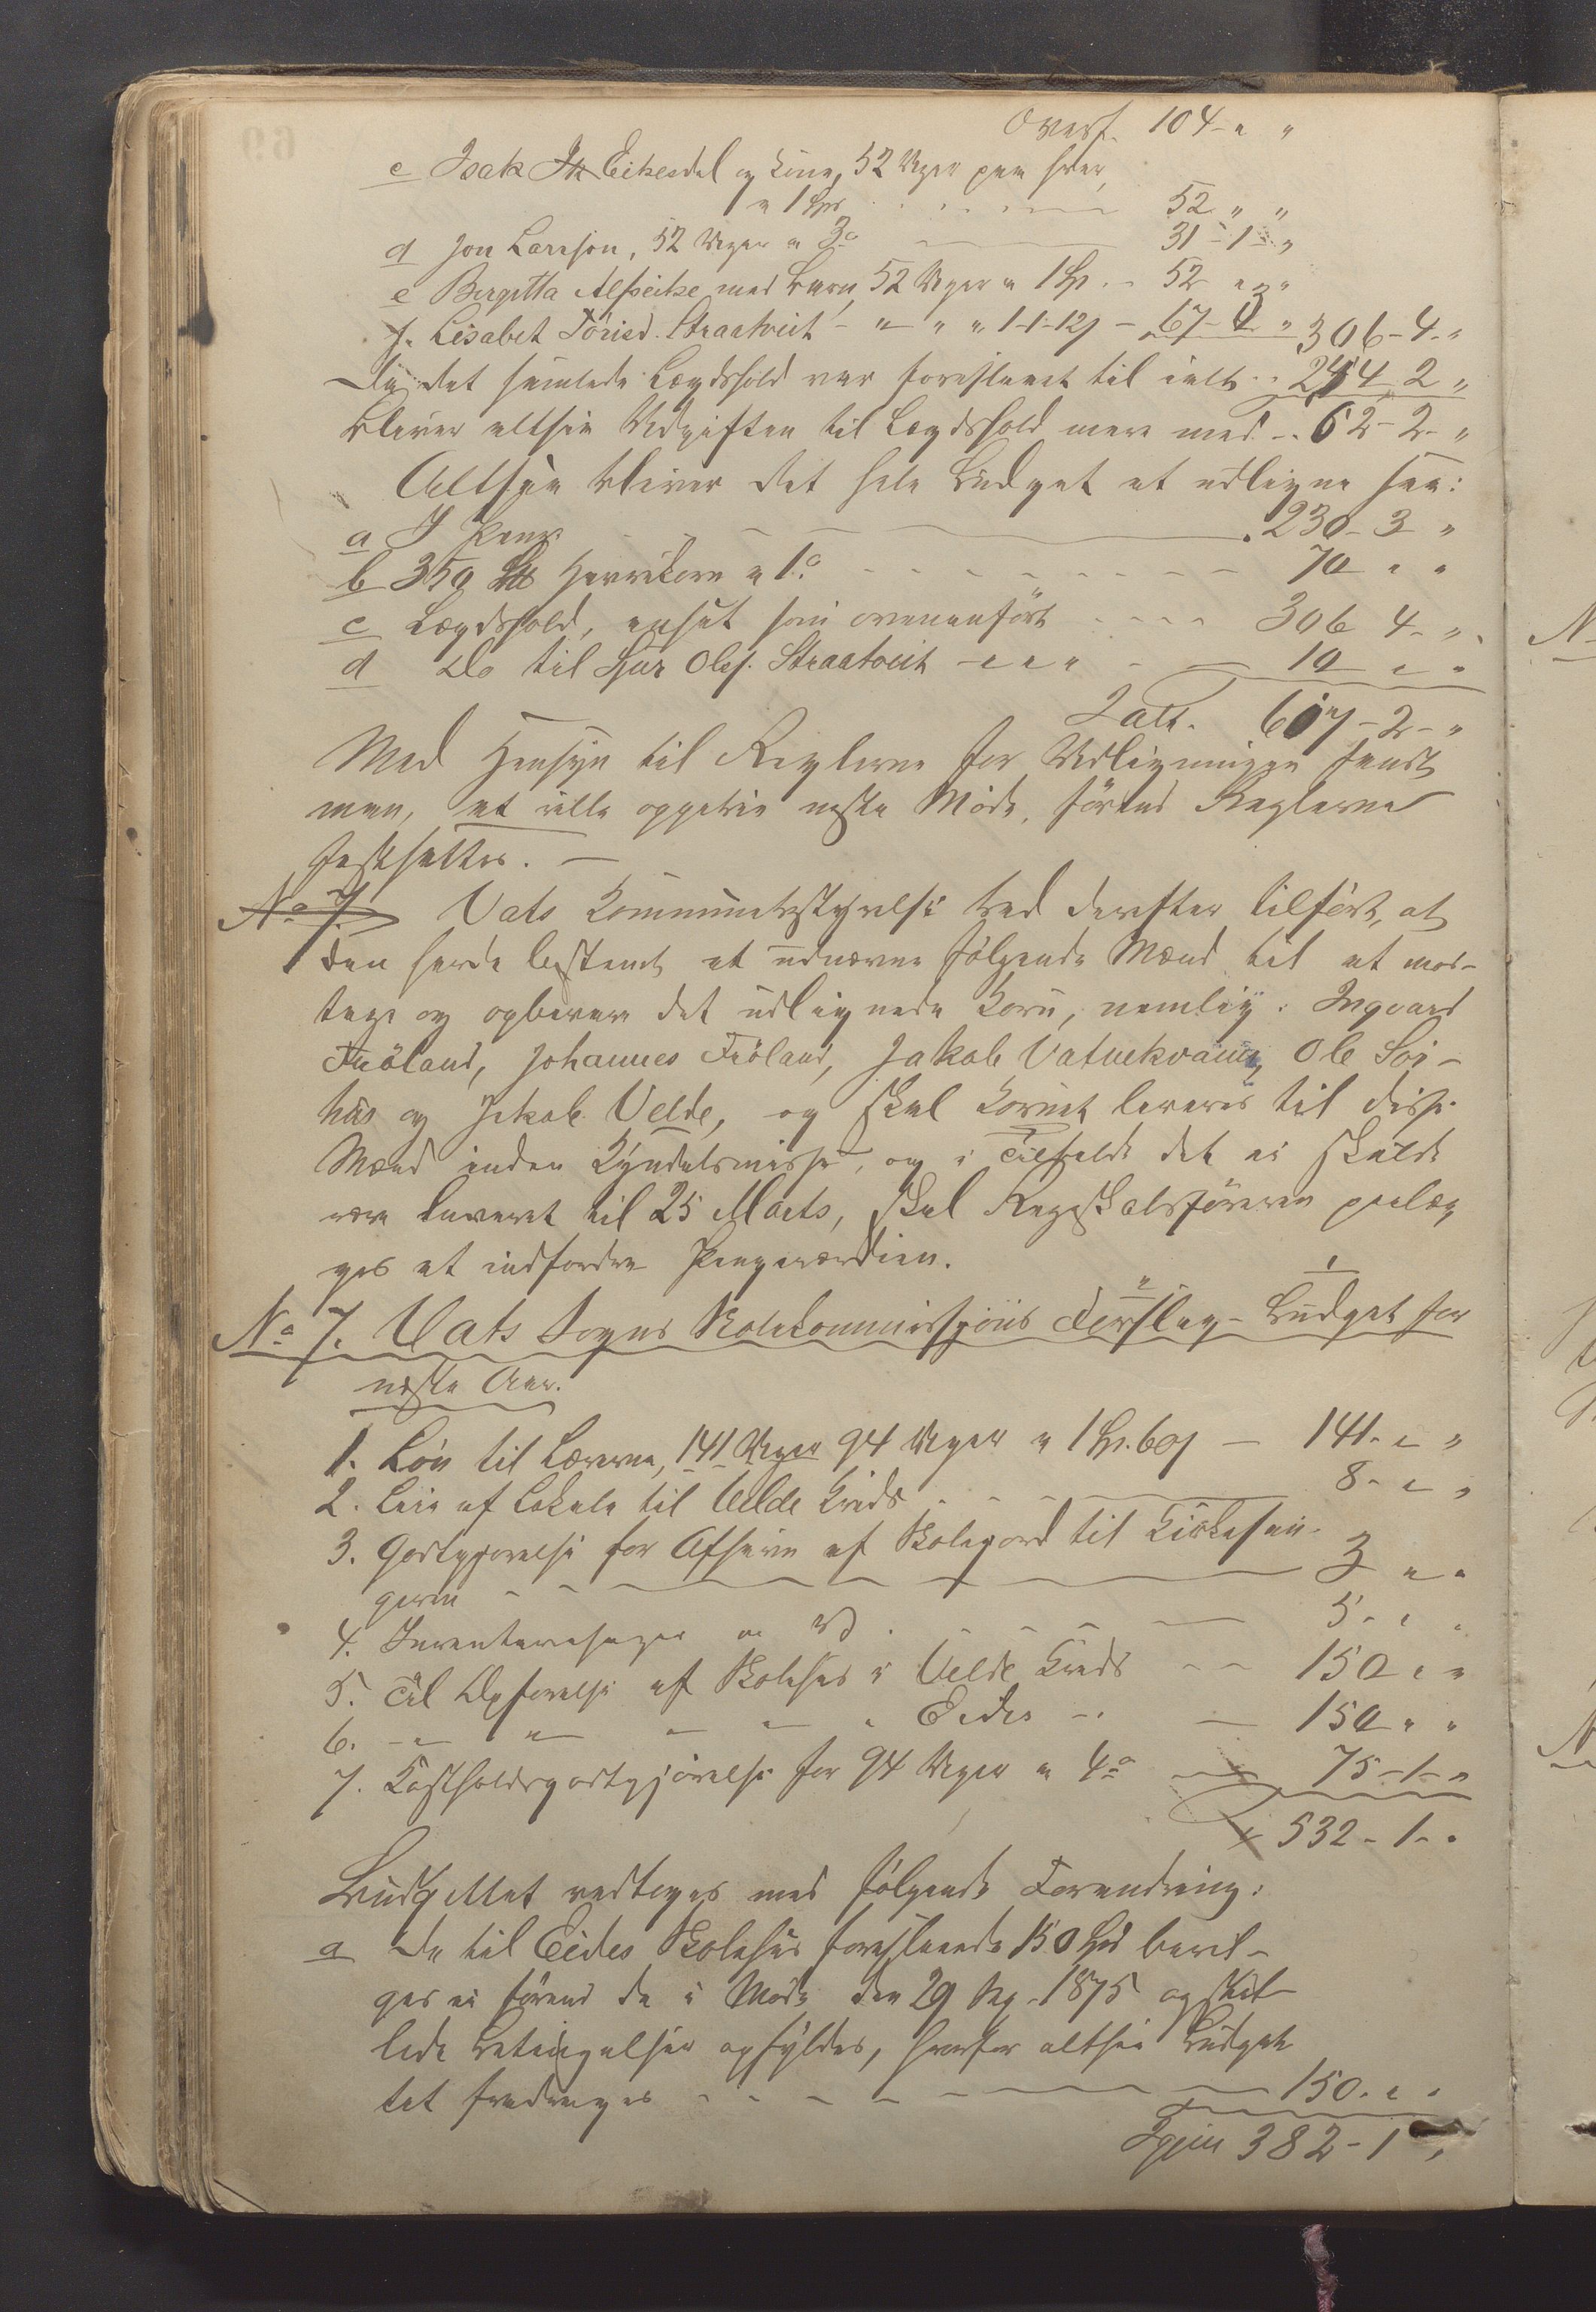 Overf. 104 - " "
c Isak Eikesdal og Kone, 52 Uger paa hver,
a 1 Spd. 52 " "
d Jon Larsson, 52 Uger a 3 o 31 - 1 - "
e Bergitta Alfseike med Barn, 52 Uger a 1 Sp. 52 " "
f. Lisabet Törisd. Straatveit - " - " " 1-1-12 s - 67 - 3 " 306 - 4 - "
Da det samlede Lægdshold var foreslaaet til ialt 244 2 "
bliver altsaa Udgiften til Lægdshold mere med - 62 - 2 - "
Altsaa bliver det hele Budget at udligne saa:
a I Penge 230 - 3 "
b 350 Havrekorn a 1 o 70 " "
c Lægdshold, ansat som ovenanfört 306 4 - "
d Do til Sjur Olsf. Straatveit - " " " 10 " "
Ialt. 617 - 2 - "
Med Hensyn til Reglerne for Udligningen fandt
man, at ville oppebie næste Möde, förend Reglerne
fastsattes. -
No 7. Vats Kommunebestyrelse lod derefter tilföre, at
den havde bestemt at udnævne fölgende Mænd til at mod-
tage og opbevare det udlignede Korn, nemlig: Ingvard
Fröland, Johannes Fröland, Jakob Vatnekvam, Ole Söi-
hus og Jakob Velde, og skal Kornet leveres til disse
Mænd inden Kyndelsmisse, og i Tilfælde det ei skulde
være leveret til 25 Marts, skal Regnskabsföreren paalæg-
ges at indfordre Pengeværdien.
No 7. Vats Sogns Skolekommissjons Forslag - Budget for
næste Aar.
1. Lön til Lærerne, 141 Uger 94 Uger a 1 Sp. 60 s - 141 - " "
2. Leie af Lokale til Velde Kreds 8 - " "
3. Godtgjörelse for Afsavn af Skolejord til Kirkesan-
geren 3 " "
4. Inventariesager 5 - " "
5. Til Opförelse af Skolehus i Velde Kreds - - 150 " "
6. - " - " - " - " " Eides - " - 150 " "
7. Kostholdsgodtgjörelse for 94 Uger a 4 o 75 - 1 - "
532 - 1 - "
Budgettet vedtoges med fölgende Forandring:
a De til Eides Skolehus foreslaaede 150 Spd bevil-
ges ei förend de i Möde den 29 1875 opstil-
lede Betingelser opfyldes, hvorfor altsaa Budget-
tet fradrages - - - - 150 - " "
Igjen 382 - 1 "